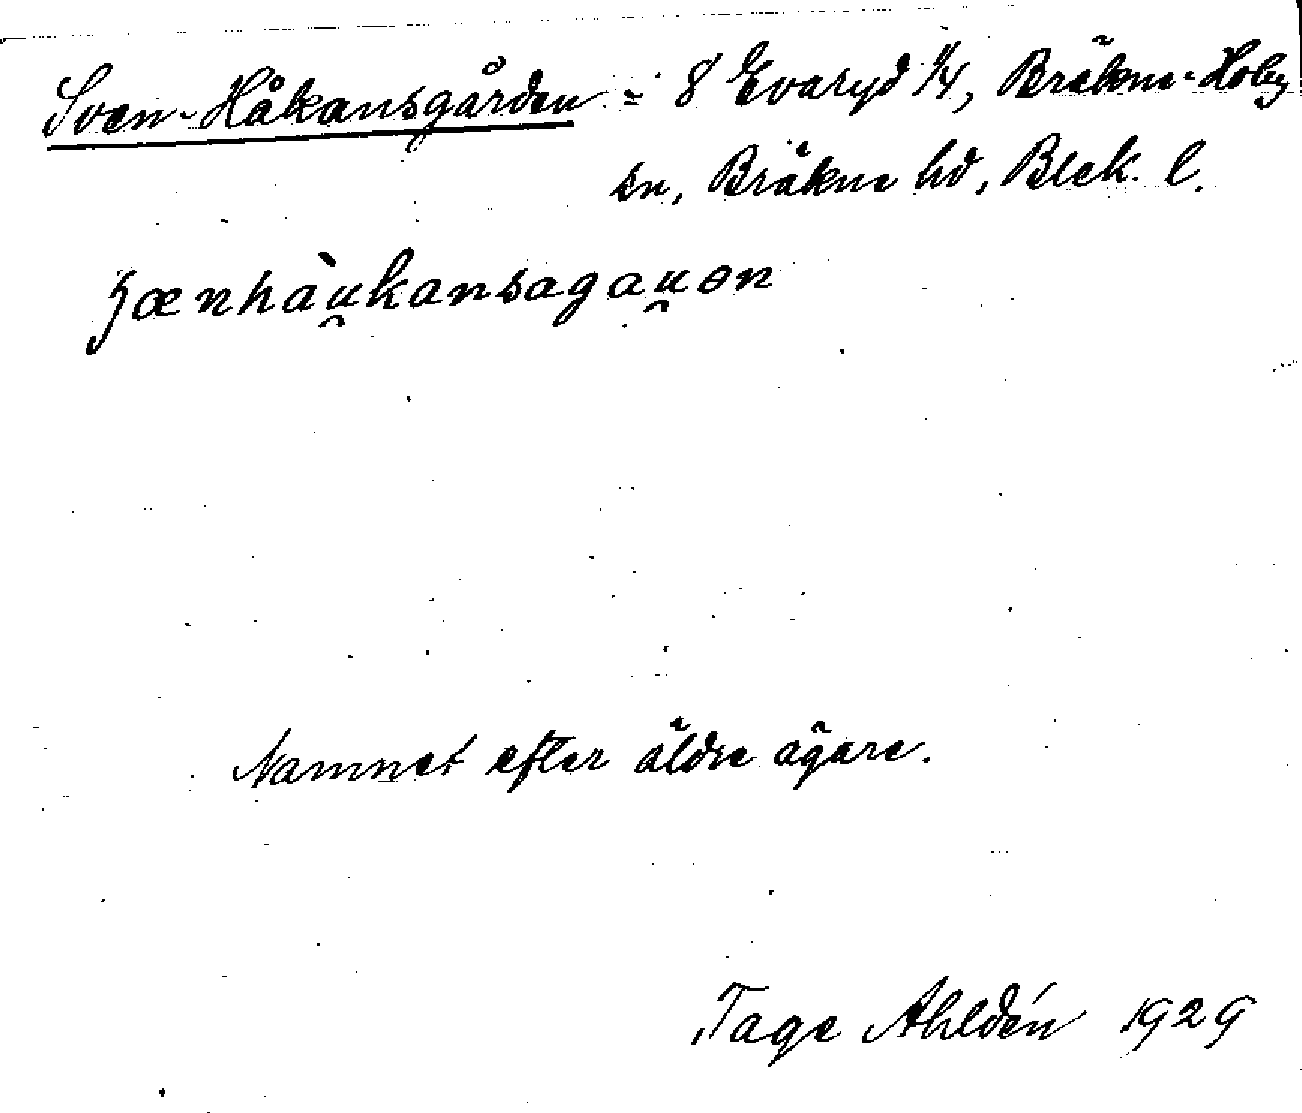 Sven-Håkansgården = 8 Evaryd 1/4, Bräkne-Hoby
sn, Bräkne hd, Blek. l.
Namnet efter äldre ägare.
Tage Ahldén 1929